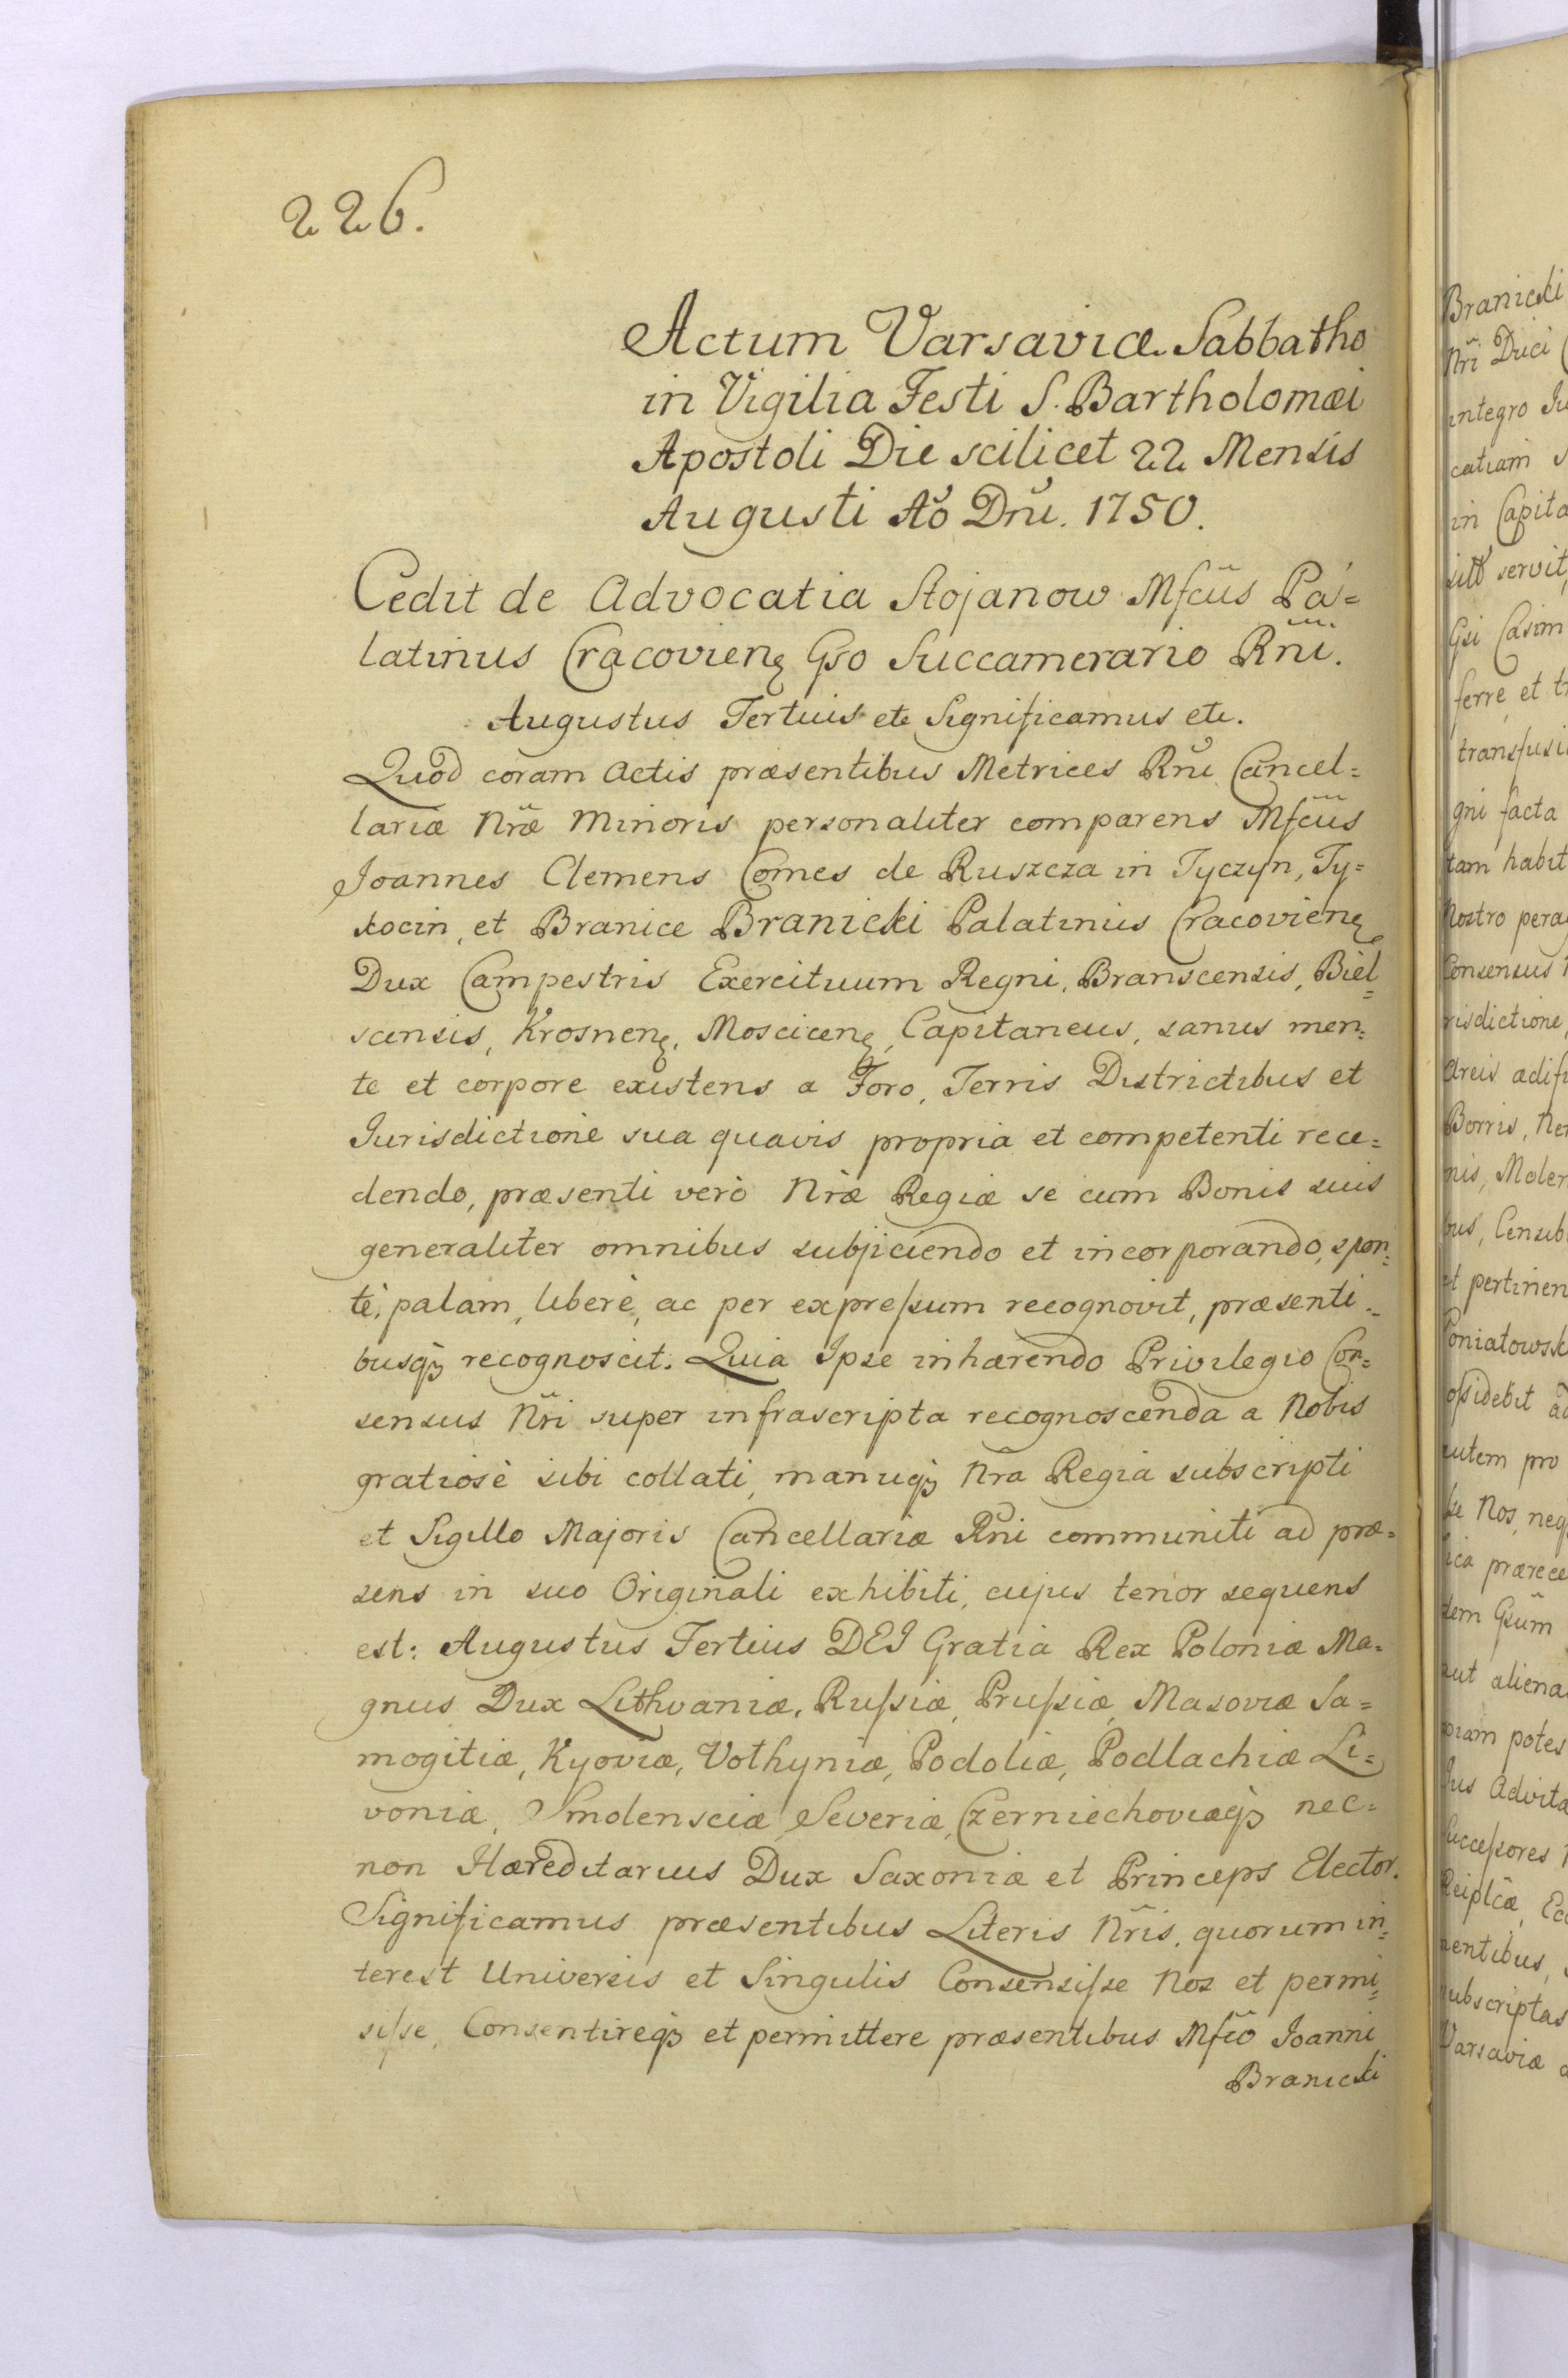 226.
Actum Varsaviæ Sabbatho
in Vigilia Festi S. Bartholomæi
Apostoli Die scilicet 22 Mensis
Augusti Aõ Dnĩ. 1750.
Cedit de Advocatia Stojanow Mfcũs Pa=
latinus Cracovien Gso Succamerario Rnĩ.
Augustus Tertius etc Significamus etc.
Quod coram Actis præsentibus Metrices Rnĩ Cancel=
lariæ Nræ Minoris personaliter comparens Mfcũs
Joannes Clemens Comes de Ruszcza in Tyczyn, Ty=
kocin, et Branice Branicki Palatinus Cracovien
Dux Campestris Exercituum Regni, Branscensis, Biel=
scensis, Krosnen, Moscicen, Capitaneus, sanus men=
te et corpore existens a Foro, Terris Districtibus et
Jurisdictione sua quavis propria et competenti rece=
dendo, præsenti verò Nræ Regiæ se cum Bonis suis
generaliter omnibus subjiciendo et incorporando, spon=
tè, palam, liberè, ac per expreſsum recognovit, præsenti=
busqꝫ recognoscit. Quia Ipse inhærendo Privilegio Con=
sensus Nr̃i super infrascripta recognoscenda a Nobis
gratiosè sibi collati, manuqꝫ Nr̃a Regia subscripti
et Sigillo Majoris Cancellariæ Rñi communiti ad præ=
sens in suo Originali exhibiti, cujus tenor sequens
est: Augustus Tertius DEI Gratia Rex Poloniæ Ma=
gnus Dux Lithvaniæ, Ruſsiæ, Pruſsiæ, Masoviæ Sa=
mogitiæ, Kyoviæ, Volhyniæ, Podoliæ, Podlachiæ Li=
voniæ, Smolensciæ, Severiæ, Czerniechoviæqꝫ nec=
non Hæreditarius Dux Saxoniæ et Princeps Elector.
Significamus præsentibus Literis Nr̃is, quorum in=
terest Universis et Singulis Consensiſse Nos et permi=
siſse, Consentireqꝫ et permittere præsentibus Mfcõ Joanni
Branicki
Branicki
Nr̃i Duci
integro
catiam
in Capita
servit,
Gsi Casim
ferre et
transfusi
gni facta
tam habit
Nostro pera
Consensus
risdictione,
Areis ædifi
Borris,
nis, Molen
bus, Censib
et pertinen
Poniatowsk
oſsidebit
autem pro
Nos, neq
præ
dem Gsũm
aut aliena
potes
Jus Advita
Succeſsores
Reiplcæ,
subscriptas
Varsaviæ